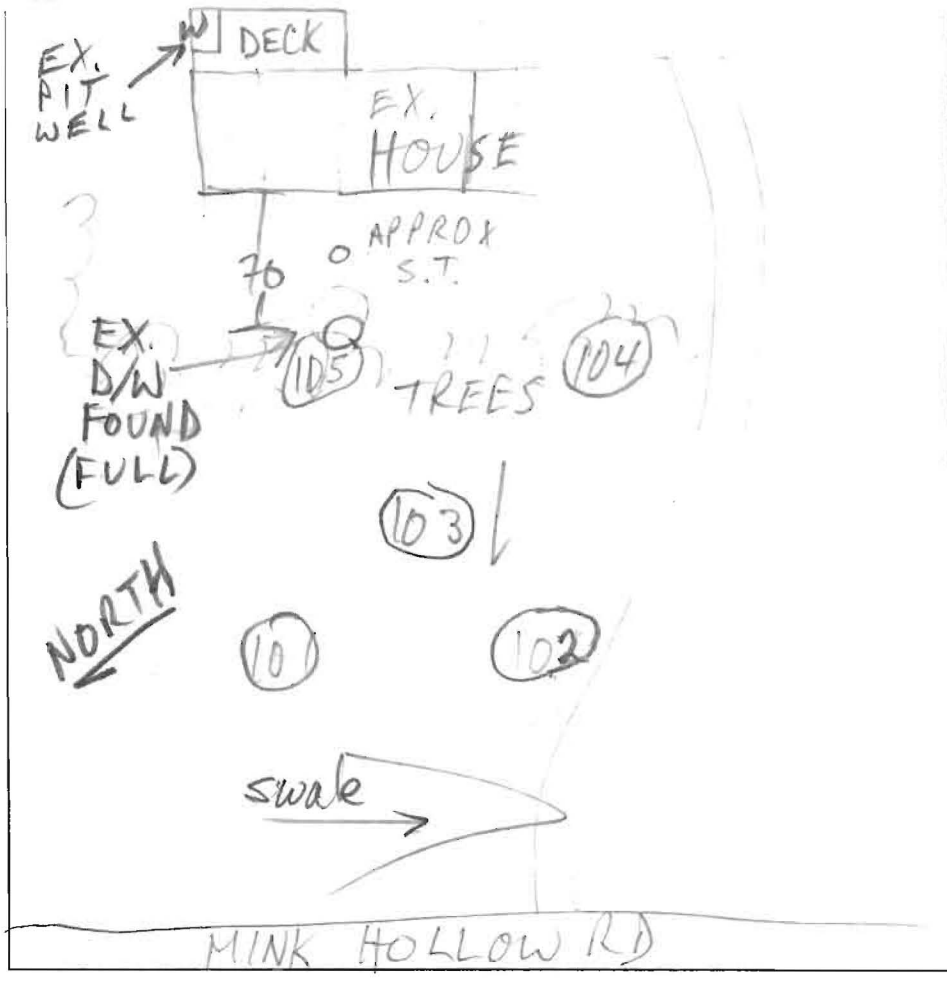 W
DECK
EX.
PIT
WELL
EX.
HOUSE
APPROX
S.T.
70
EX.
D/W
FOUND
(FULL)
105
TREES
104
103
NORTH
101
102
swale
MINK HOLLOW RD